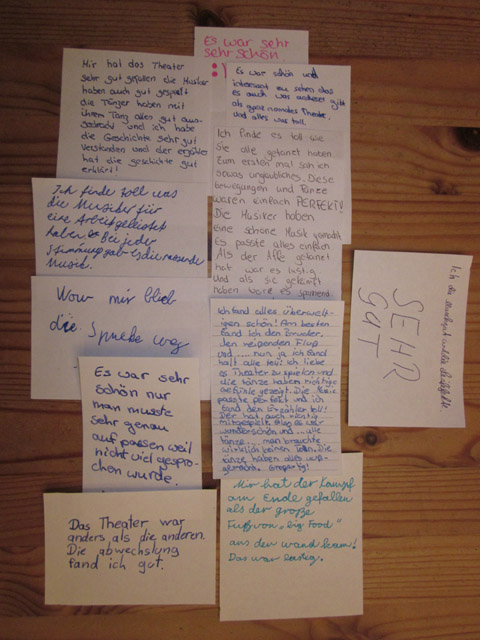 Es war sehr
sehr schön
:)
Mir hat das Theater
sehr gut gefallen die Musiker
haben auch gut gespielt
die Tänzer haben mit
ihrem Tanz alles gut aus-
gedrückt und ich habe
die Geschichte sehr gut
verstanden und der erzähler
hat die geschichte gut
erklärt!
Es war schön und
interessant zu sehen das
es auch was anderes gibt
als ganz normales Theater.
Und alles war toll.
Ich finde es toll wie
Sie alle getanzt haben.
Zum ersten mal sah ich
sowas unglaubliches. Diese
bewegungen und Tänze
waren einfach PERFEKT!
Die Musiker haben
eine schöne Musik gemacht
Es passte alles einfach
Als der Affe getanzt
hat war es lustig
und als sie gekämpft
haben ware es spannend.
Ich finde toll was
die Musiker für
eine Arbeit geleistet
haben. Bei jeder
Stimmung gab es die passende
Musik.
Wow mir blieb
die Sprache weg
Ich fand alles überwält-
igen schön! Am besten
fand ich den
den Fluß
und ..... nun ja ich fand
halt alles toll! ich liebe
es Theater zu spielen und
die tänze haben richtige
Gefühle gezeigt. Die
passte perfekt und ich
fand den Erzähler toll!
Der hat auch richtig
mitgespielt. es war
wunderschön und ... die
tänze .... man brauchte
wirklich keinen Die
tänze haben alles
gemacht. Großartig!
Es war sehr
schön nur
man musste
sehr genau
auf passen weil
nicht viel gespro-
chen wurde.
Das Theater war
anders als die anderen.
Die abwechslung
fand ich gut.
Mir hat der Kampf
am Ende gefallen
als der große
Fuß von "big Food"
aus den wand kam!
Das war lustig.
Ich
SEHR
GUT